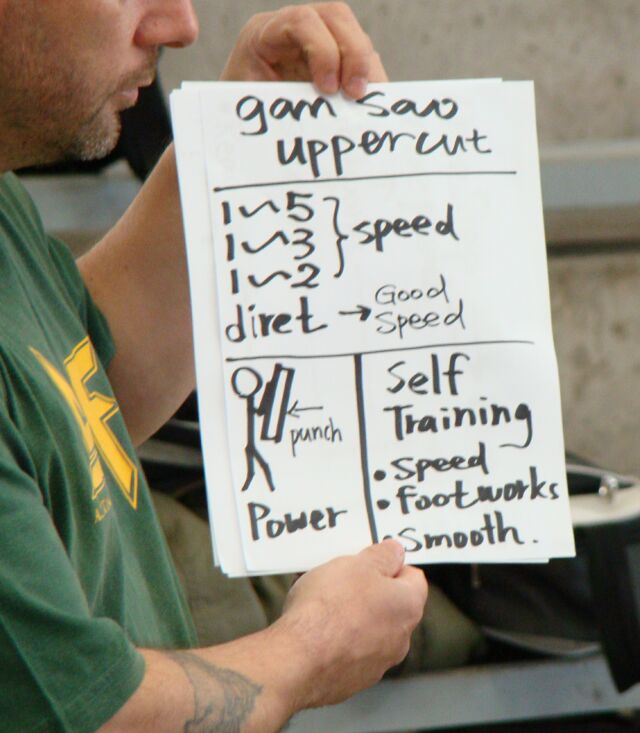 gam sao
uppercut
1~5
1~3
1~2
} speed
diret → Good
Speed
← punch
Power
Self
Training
• Speed
• footworks
• Smooth.